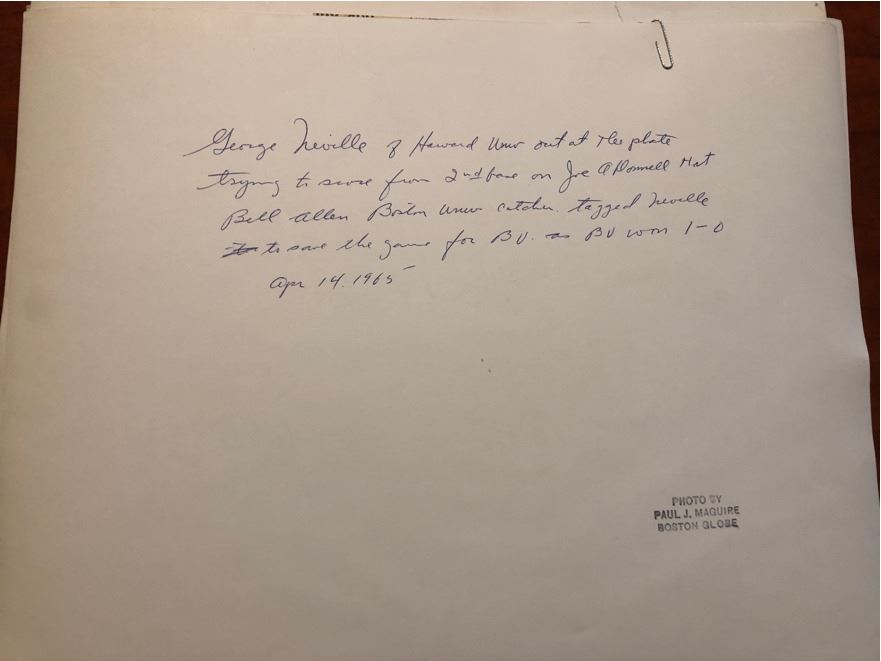 George Neville of Harvard Univ out at the plate
trying to score from 2nd base on Joe O'Donnell Hit
Bill Allen Boston Univ catcher. tagged Neville
to save the game for BU. as BU won 1-0
Apr 14. 1965
PHOTO BY
PAUL J. MAGUIRE
BOSTON GLOBE